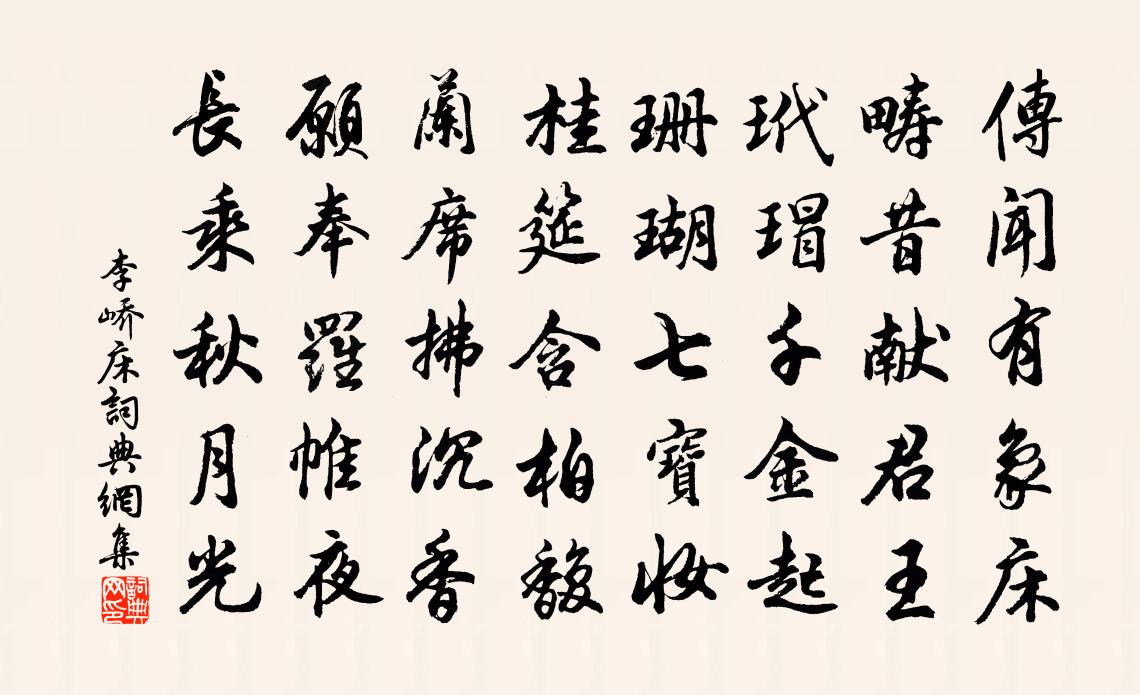 傳聞有象床
疇昔献君王
玳瑁千金起
珊瑚七寶妝
桂筵含柏馥
蘭席拂沉香
願奉羅帷夜
長乘秋月光
李嶠床詞典網集
詞典网印